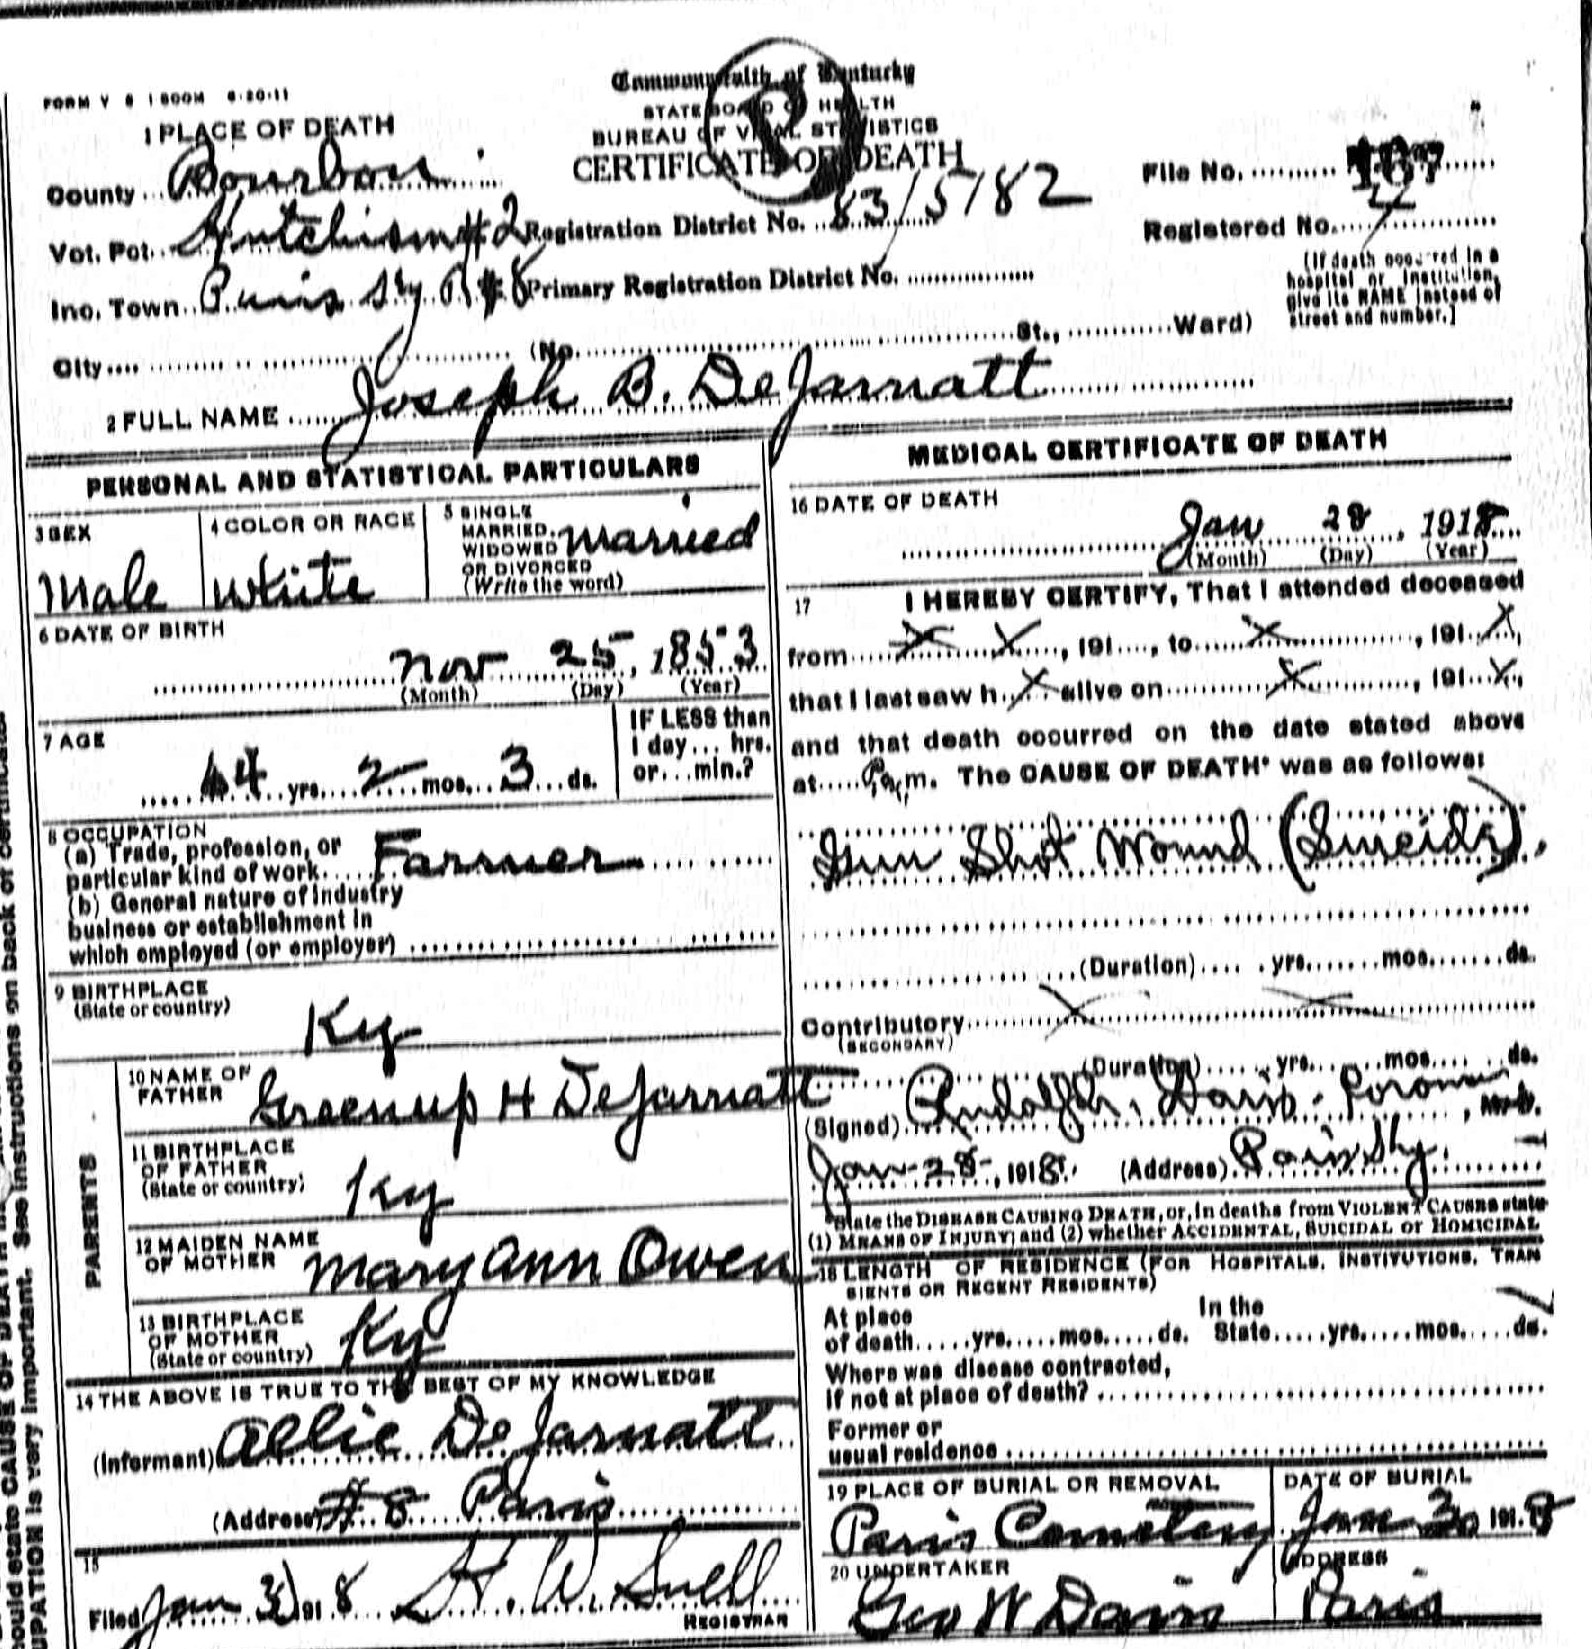 FORM V S 1 500M 6-20-11
Commonwealth of Kentucky
STATE BOARD OF HEALTH
BUREAU OF VITAL STATISTICS
CERTIFICATE OF DEATH
1 PLACE OF DEATH
County Bourbon
File No.
Vot. Pct. Hutchison #2 Registration District No. 83/5182
Registered No.
Inc. Town Paris Ky R#8 Primary Registration District No.
(If death occurred in a
hospital or institution,
give its NAME instead of
street and number.]
City (No. St., Ward)
2 FULL NAME Joseph B. DeJarnatt
PERSONAL AND STATISTICAL PARTICULARS
3 SEX
Male
4 COLOR OR RACE
White
5 SINGLE
MARRIED,
WIDOWED
OR DIVORCED
(Write the word)
Married
6 DATE OF BIRTH
Nov 25, 1853
(Month) (Day) (Year)
7 AGE
64 yrs. 2 mos. 3 ds.
IF LESS than
1 day... hrs.
or...min.?
8 OCCUPATION
(a) Trade, profession, or
particular kind of work Farmer
(b) General nature of industry
business or establishment in
which employed (or employer)
9 BIRTHPLACE
(State or country)
Ky
PARENTS
10 NAME OF
FATHER
Greenup H DeJarnatt
11 BIRTHPLACE
OF FATHER
(State or country)
Ky
12 MAIDEN NAME
OF MOTHER
Mary Ann Owen
13 BIRTHPLACE
OF MOTHER
(State or country)
Ky
14 THE ABOVE IS TRUE TO THE BEST OF MY KNOWLEDGE
(Informant) Allie DeJarnatt
(Address) #8 Paris
15
Filed Jan 1918 W. Snell
REGISTRAR
MEDICAL CERTIFICATE OF DEATH
16 DATE OF DEATH
Jan 28, 1918
(Month) (Day) (Year)
17 I HEREBY CERTIFY, That I attended deceased
from X X, 191...., to X, 191 X,
that I last saw h X alive on X, 191 X,
and that death occurred on the date stated above
at m. The CAUSE OF DEATH* was as follows:
Gun Shot Wound (Suicide).
(Duration) yrs. mos. ds.
Contributory X X
(SECONDARY)
(Duration) yrs. mos. ds.
(Signed) Rudolph Davis Coroner, M.D.
Jan 28, 1918. (Address) Paris Ky.
*State the DISEASE CAUSING DEATH, or, in deaths from VIOLENT CAUSES state
(1) MEANS OF INJURY; and (2) whether ACCIDENTAL, SUICIDAL or HOMICIDAL
18 LENGTH OF RESIDENCE (FOR HOSPITALS, INSTITUTIONS, TRAN
SIENTS OR RECENT RESIDENTS)
At place In the
of death yrs. mos. ds. State yrs. mos. ds.
Where was disease contracted,
if not at place of death?
Former or
usual residence
19 PLACE OF BURIAL OR REMOVAL
Paris Cemetery
DATE OF BURIAL
Jan 30 1918
20 UNDERTAKER
Geo W Davis
ADDRESS
Paris
See instructions on back of certificate
should state CAUSE OF DEATH in
UPATION is very important.